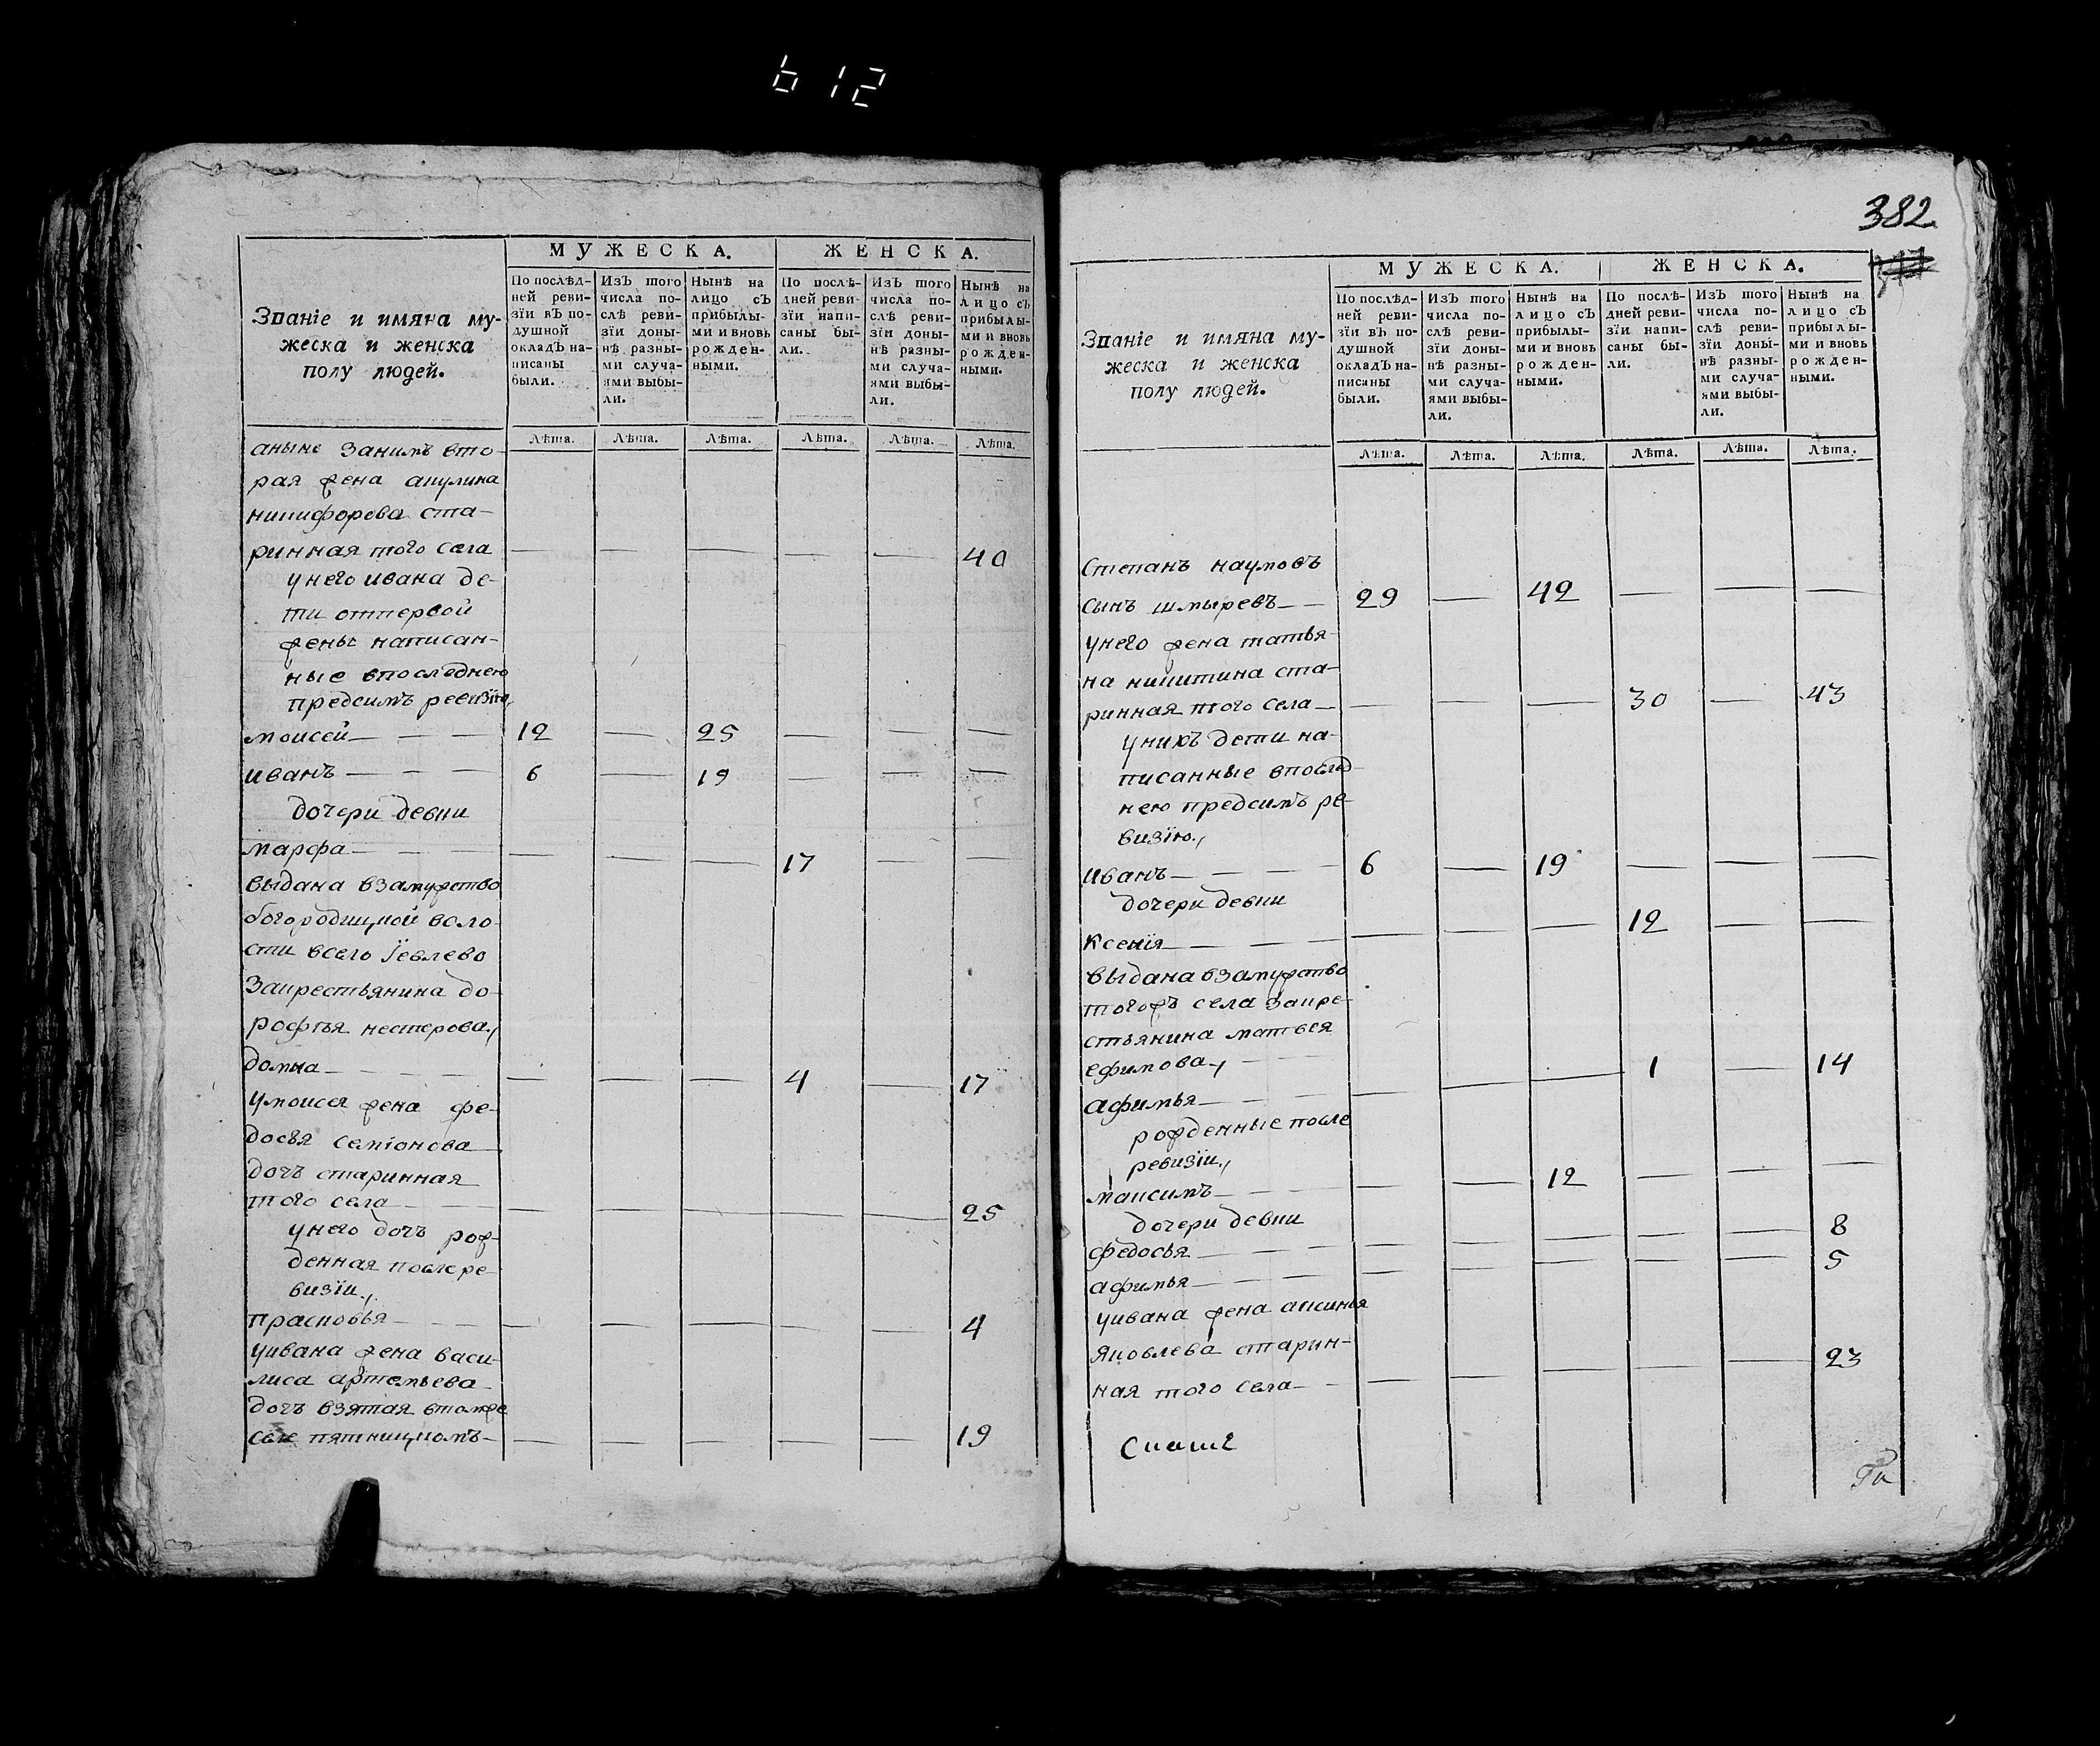 612
МУЖЕСКА. ЖЕНСКА.
Званіе и имяна му-
жеска и женска
полу людей.
По послѣд-
ней реви-
зїи вЪ по-
душной
окладЪ на-
писаны
были.
ИзЪ того
числа по-
слѣ реви-
зїи доны-
нѣ разны-
ми случа-
ями выбы-
ли.
Нынѣ на
лицо сЪ
прибылы-
ми и вновь
рожден-
ными.
По послѣ-
дней реви-
зїи напи-
саны бы-
ли.
ИзЪ того
числа по-
слѣ реви-
зїи доны-
нѣ разны-
ми случа-
ями выбы-
ли.
Нынѣ на
лицо сЪ
прибылы-
ми и вновь
рожден-
ными.
Лѣта. Лѣта. Лѣта. Лѣта. Лѣта. Лѣта.
аныне занимъ вто-
рая жена акулина
никифорева ста-
ринная того села — — — — — 40
унего ивана де-
ти отпервой
жены написан-
ные впоследнею
предсимъ ревизїю,
моисей — — — 12 — 25 — — —
иванъ — — — 6 — 19 — — —
дочери девки
марфа — — — — — — 17 — —
выдана взамужство
богородицкой воло-
сти всело Їевлево
закрестьянина до-
рофѣя нестерова,
домна — — — — — — 4 — 17
умоисея жена фе-
досья семïонова
дочъ старинная
того села — — — — — — — 25
унего дочъ рож-
денная послере-
визїи,
прасковья — — — — — — — — 4
уивана жена васи-
лиса артемьева
дочъ взятая втомже
селе пятницкомъ — — — — — — 19
382
МУЖЕСКА. ЖЕНСКА.
Званіе и имяна му-
жеска и женска
полу людей.
По послѣд-
ней реви-
зїи вЪ по-
душной
окладЪ на-
писаны
были.
ИзЪ того
числа по-
слѣ реви-
зїи доны-
нѣ разны-
ми случа-
ями выбы-
ли.
Нынѣ на
лицо сЪ
прибылы-
ми и вновь
рожден-
ными.
По послѣ-
дней реви-
зїи напи-
саны бы-
ли.
ИзЪ того
числа по-
слѣ реви-
зїи доны-
нѣ разны-
ми случа-
ями выбы-
ли.
Нынѣ на
лицо сЪ
прибылы-
ми и вновь
рожден-
ными.
Лѣта. Лѣта. Лѣта. Лѣта. Лѣта. Лѣта.
Степанъ наумовъ
сынъ шмыревъ — — 29 — 42 — — —
унего жена татья-
на никитина ста-
ринная того села — — — — 30 — 43
унихъ дети на-
писанные впослед-
нею предсимъ ре-
визїю,
иванъ — — — 6 — 19 — — —
дочери девки
ксенїя — — — — — — 12 — —
выдана взамужство
тогожъ села закре-
стьянина матвея
ефимова,
афимья — — — — — — 1 — 14
рожденные после
ревизїи,
максимъ — — — — — 12 — — —
дочери девки
федосья — — — — — — — — 8
афимья — — — — — — — — 5
уивана жена аксинья
яковлева старин-
ная того села — — — — — — 23